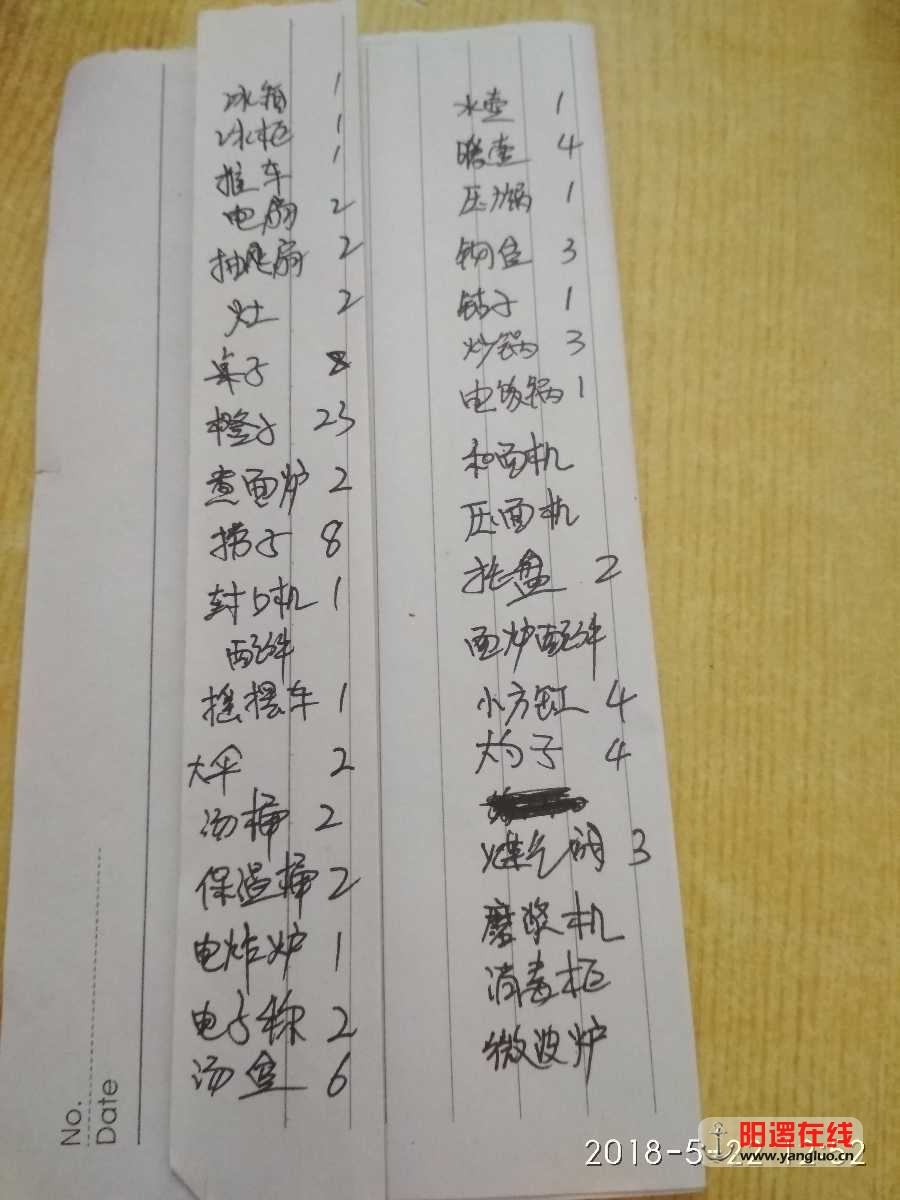 冰箱 1
冰柜 1
推车 1
电扇 2
抽风扇 2
灶 2
桌子 8
橙子 23
煮面炉 2
捞子 8
封口机 1
配件
摇摆车 1
大伞 2
汤桶 2
保温桶 2
电炸炉 1
电子称 2
汤盆 6
水壶 1
暖壶 4
压力锅 1
3
1
炒锅 3
电饭锅 1
和面机
压面机
托盘 2
面炉配件
小方缸 4
大勺子 4
煤气阀 3
磨浆机
消毒柜
微波炉
No.
Date
2018-5-22
阳逻在线
www.yangluo.cn